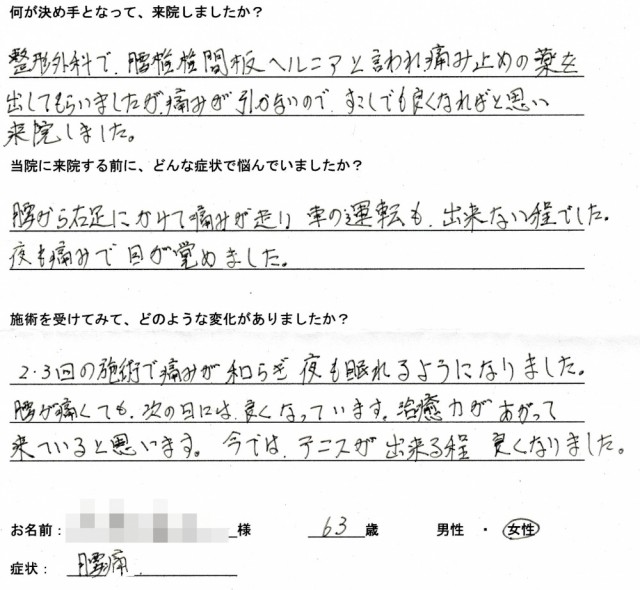 何が決め手となって、来院しましたか？
整形外科で、腰椎椎間板ヘルニアと言われ痛み止めの薬を
出してもらいましたが、痛みが引かないので、すこしでも良くなればと思い
来院しました。
当院に来院する前に、どんな症状で悩んでいましたか？
腰から右足にかけて痛みが走り 車の運転も、出来ない程でした。
夜も痛みで 目が覚めました。
施術を受けてみて、どのような変化がありましたか？
2・3回の施術で痛みが和らぎ 夜も眠れるようになりました。
腰が痛くても、次の日には、良くなっています。治癒力があがって
来ていると思います。 今では、テニスが 出来る程 良くなりました。
お名前： 様 63 歳 男性 ・ 女性
症状： 腰痛